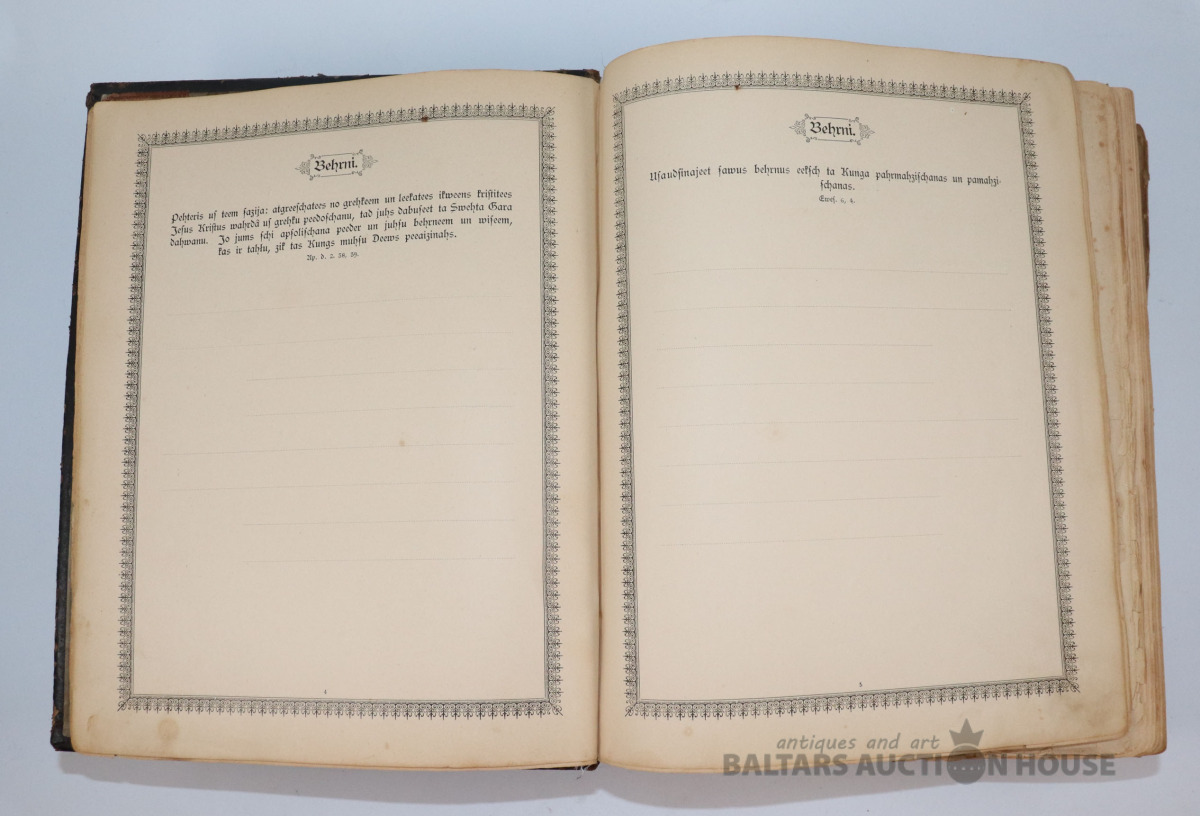 Behrni.
Pehteris uſ teem ſazija: atgreeſchatees no grehkeem un leekatees ikweens kriſtitees
Jeſus Kriſtus wahrdâ uſ grehku peedoſchanu, tad juhs dabuſeet ta Swehta Gara
dahwanu. Jo jums ſchi apſoliſchana peeder un juhſu behrneem un wiſeem,
kas ir tahļu, zik tas Kungs muhſu Deews peeaizinahs.
Ap. d. 2. 38. 39.
4
Behrni.
Uſaudſinajeet ſawus behrnus eekſch ta Kunga pahrmahziſchanas un pamahzi-
ſchanas.
Eweſ. 6, 4.
5
antiques and art
BALTARS AUCTION HOUSE